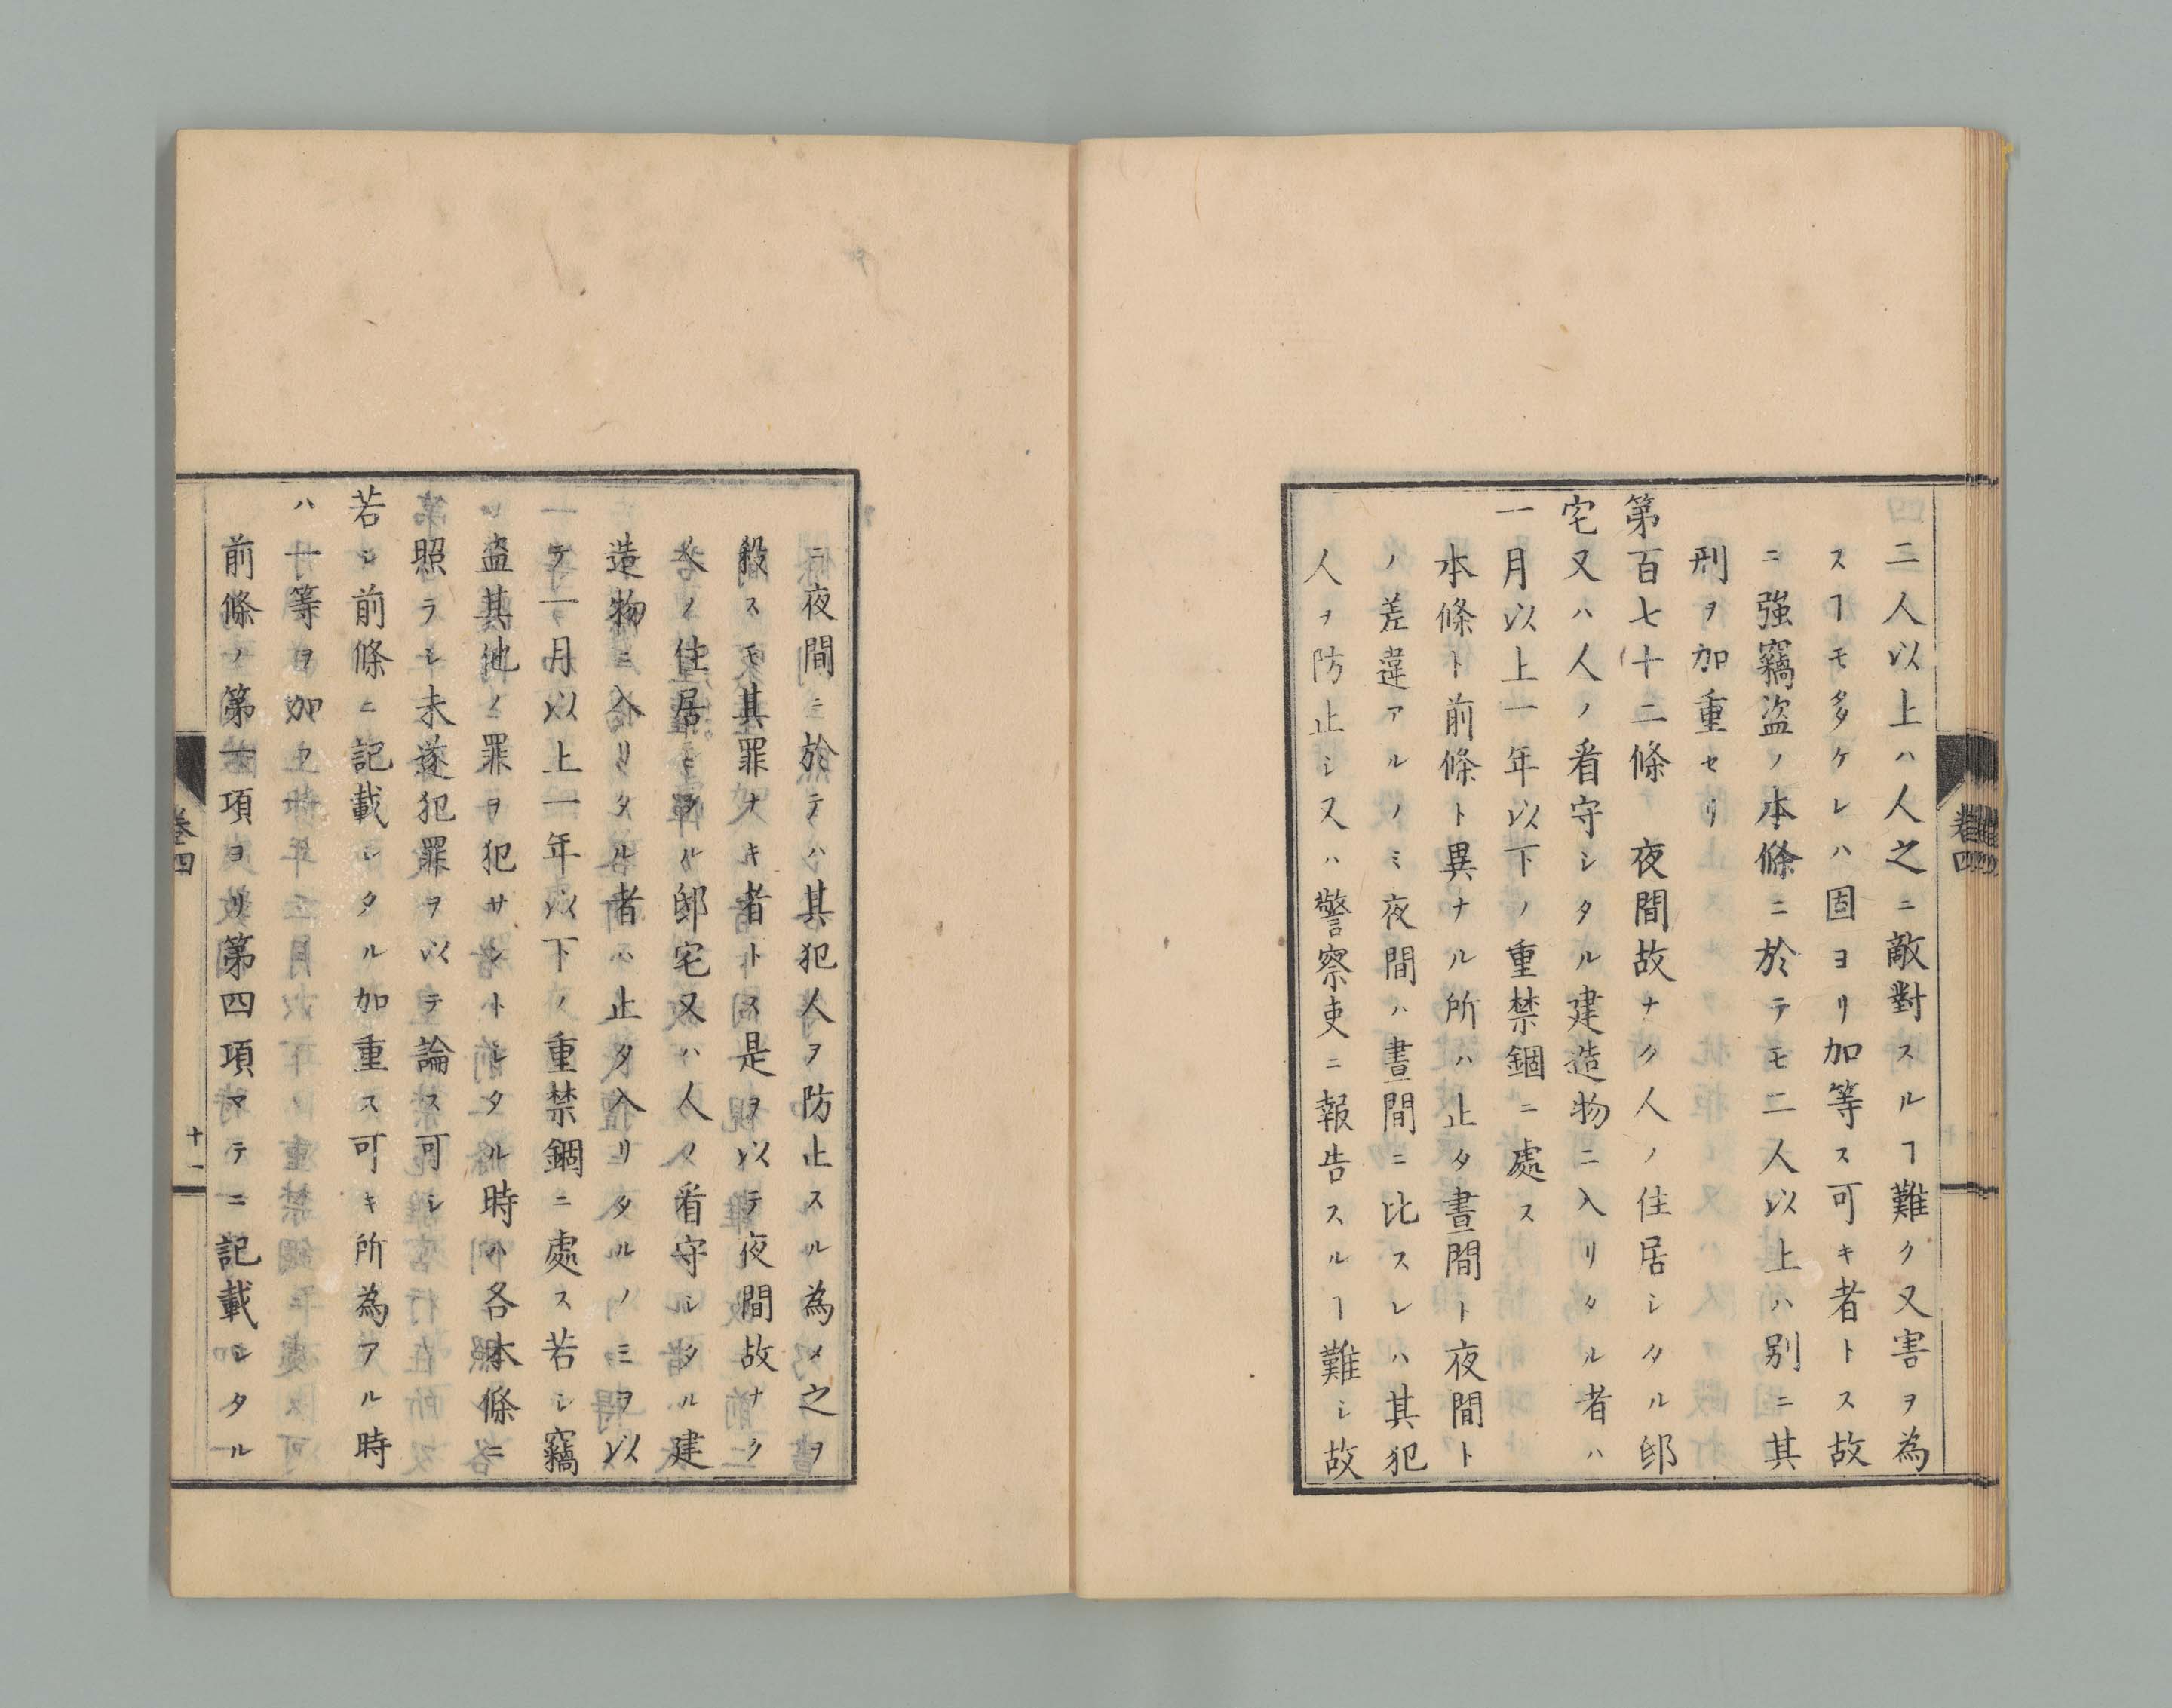 二人以上ハ人之ニ敵對スルヿ難ク又害ヲ為
スヿモ多ケレハ固ヨリ加等ス可キ者トス故
ニ強竊盗ノ本條ニ於テモ二人以上ハ別ニ其
刑ヲ加重セリ
第百七十二條 夜間故ナク人ノ住居シタル邸
宅又ハ人ノ看守シタル建造物ニ入リタル者ハ
一月以上一年以下ノ重禁錮ニ處ス
本條ト前條ト異ナル所ハ止タ晝間ト夜間ト
ノ差違アルノミ夜間ハ晝間ニ比スレハ其犯
人ヲ防止シ又ハ警察吏ニ報告スルヿ難シ故
ニ夜間ニ於テハ其犯人ヲ防止スル為メ之ヲ
殺スモ其罪ナキ者トス是ヲ以テ夜間故ナク
人ノ住居シタル邸宅又ハ人ノ看守シタル建
造物ニ入リタル者ハ止タ入リタルノミヲ以
テ一月以上一年以下ノ重禁錮ニ處ス若シ竊
盗其他ノ罪ヲ犯サントシタル時ハ各本條ニ
照ラシ未遂犯罪ヲ以テ論ス可シ
若シ前條ニ記載シタル加重ス可キ所為アル時
ハ一等ヲ加フ
前條ノ第一項ヨリ第四項マテニ記載シタル
卷四
十一